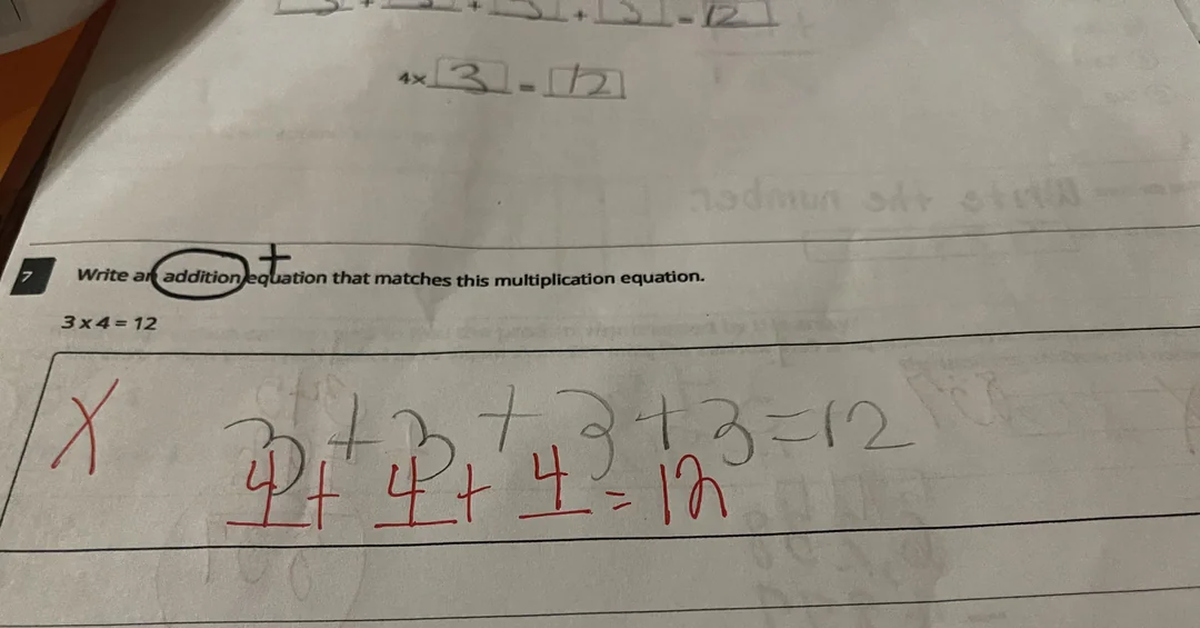 3 + 3 + 3 + 3 = 12
4x 3 = 12
Write the number
7 Write an addition equation that matches this multiplication equation.
+
3 x 4 = 12
X 3 + 3 + 3 + 3 = 12
4 + 4 + 4 = 12